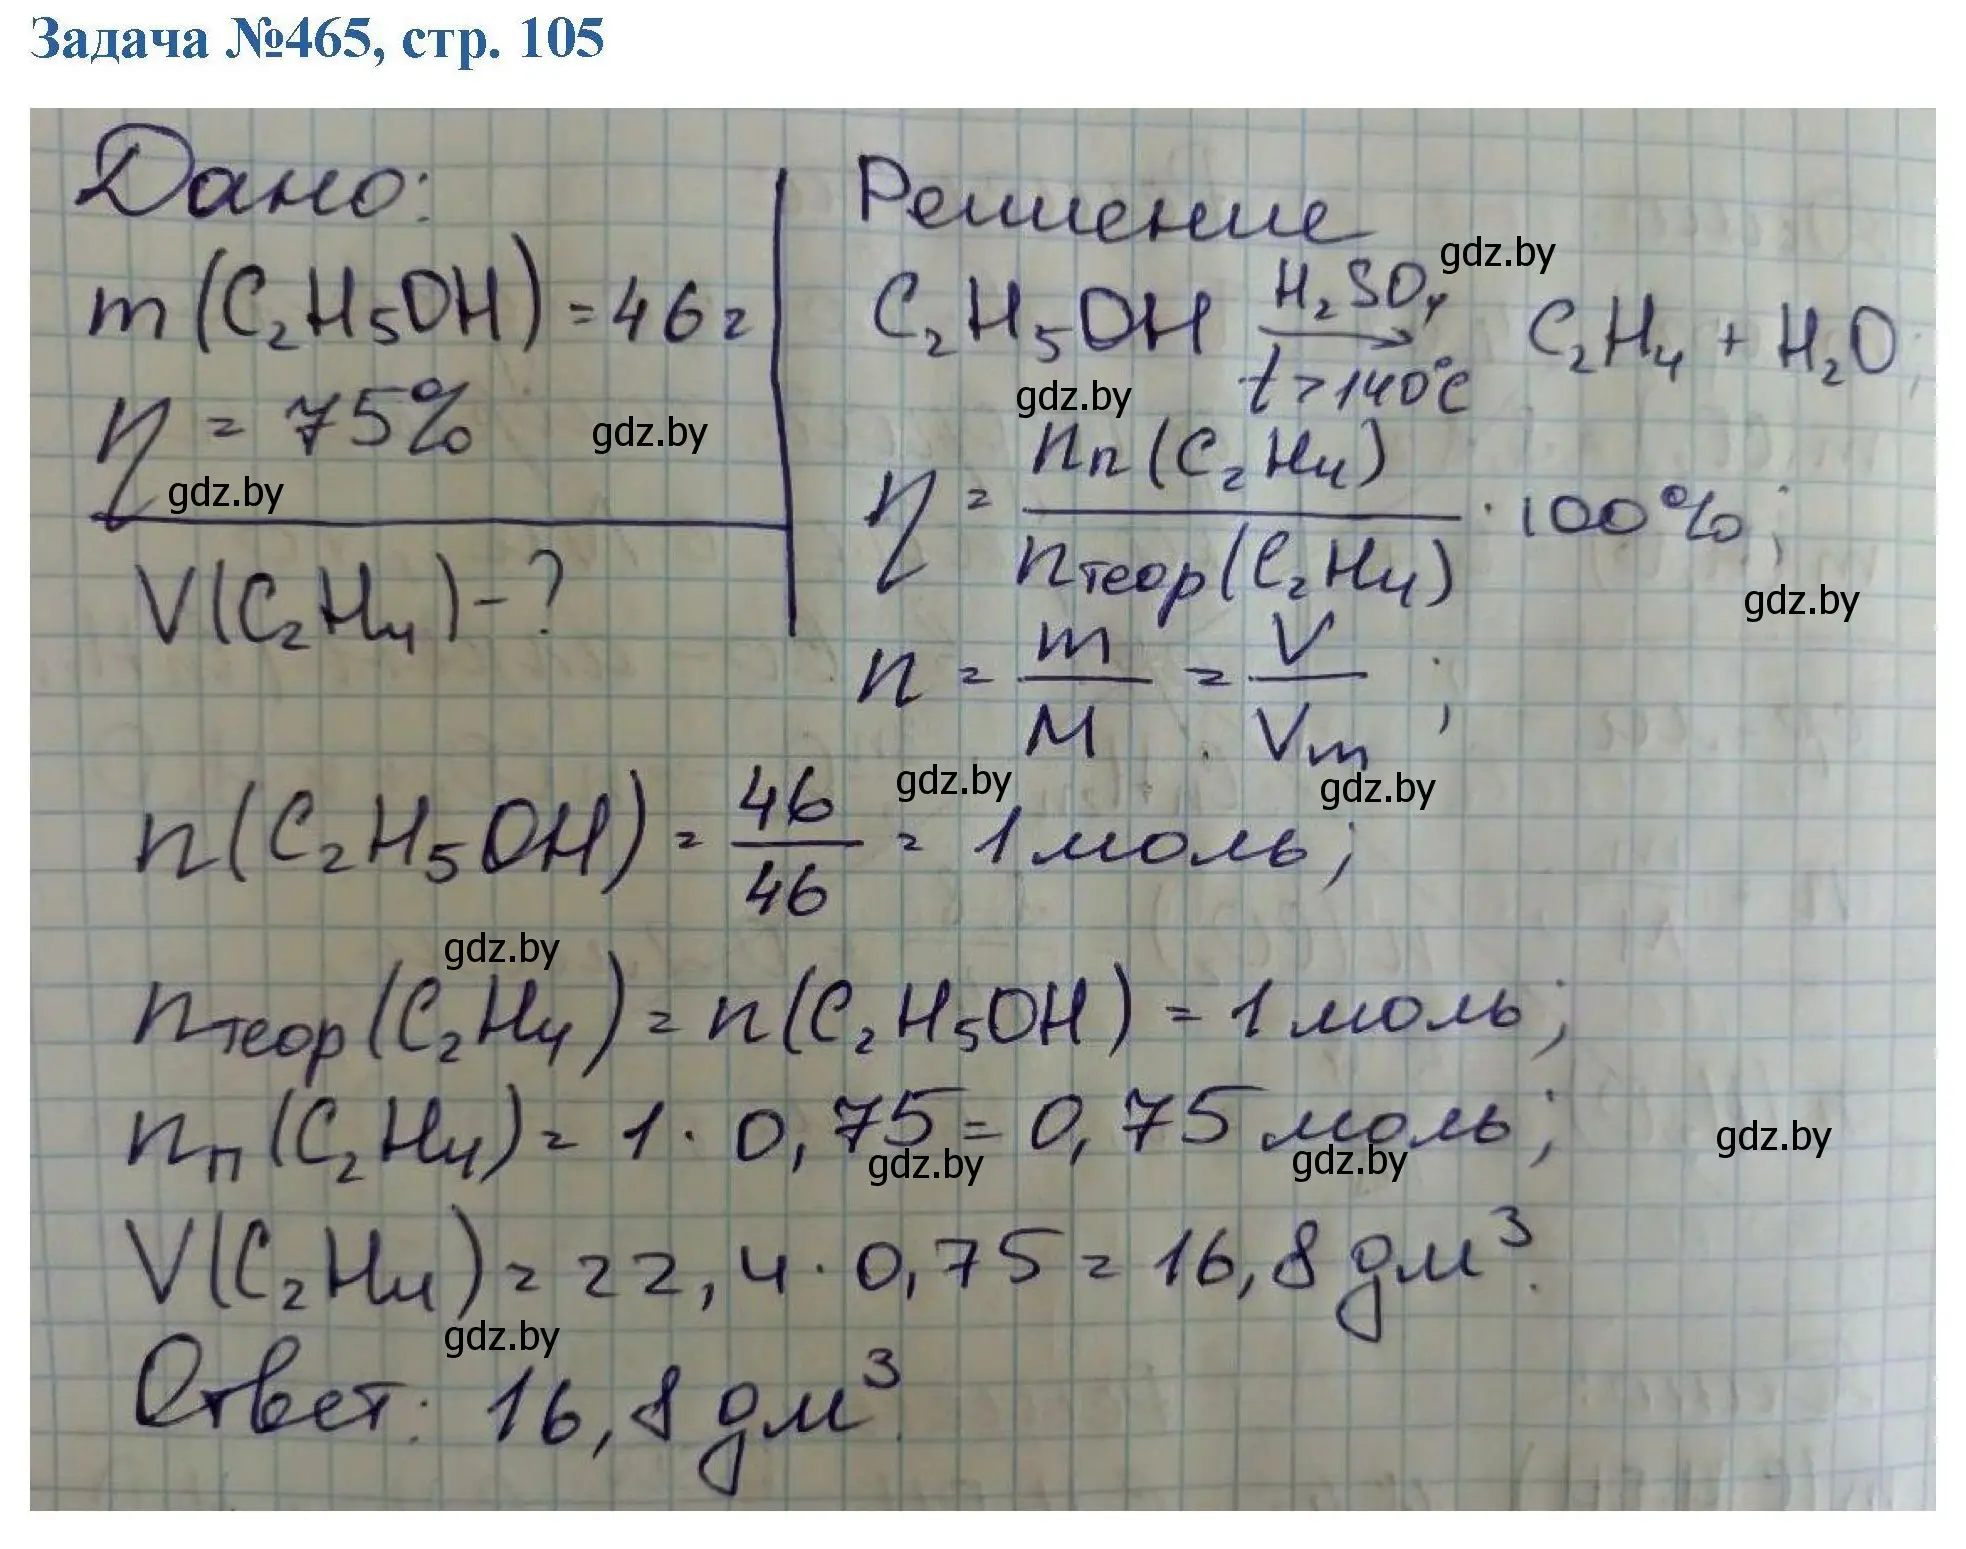 Задача №465, стр. 105
Дано:
m(C₂H₅OH) = 46 г
η = 75%
V(C₂H₄) - ?
Решение
C₂H₅OH → C₂H₄ + H₂O;
H₂SO₄
t > 140°C
η = nп(C₂H₄) / nтеор(C₂H₄) · 100%;
n = m/M = V/Vm;
n(C₂H₅OH) = 46/46 = 1 моль;
nтеор(C₂H₄) = n(C₂H₅OH) = 1 моль;
nп(C₂H₄) = 1 · 0,75 = 0,75 моль;
V(C₂H₄) = 22,4 · 0,75 = 16,8 дм³.
Ответ: 16,8 дм³.
gdz.by
gdz.by
gdz.by
gdz.by
gdz.by
gdz.by
gdz.by
gdz.by
gdz.by
gdz.by
gdz.by
gdz.by